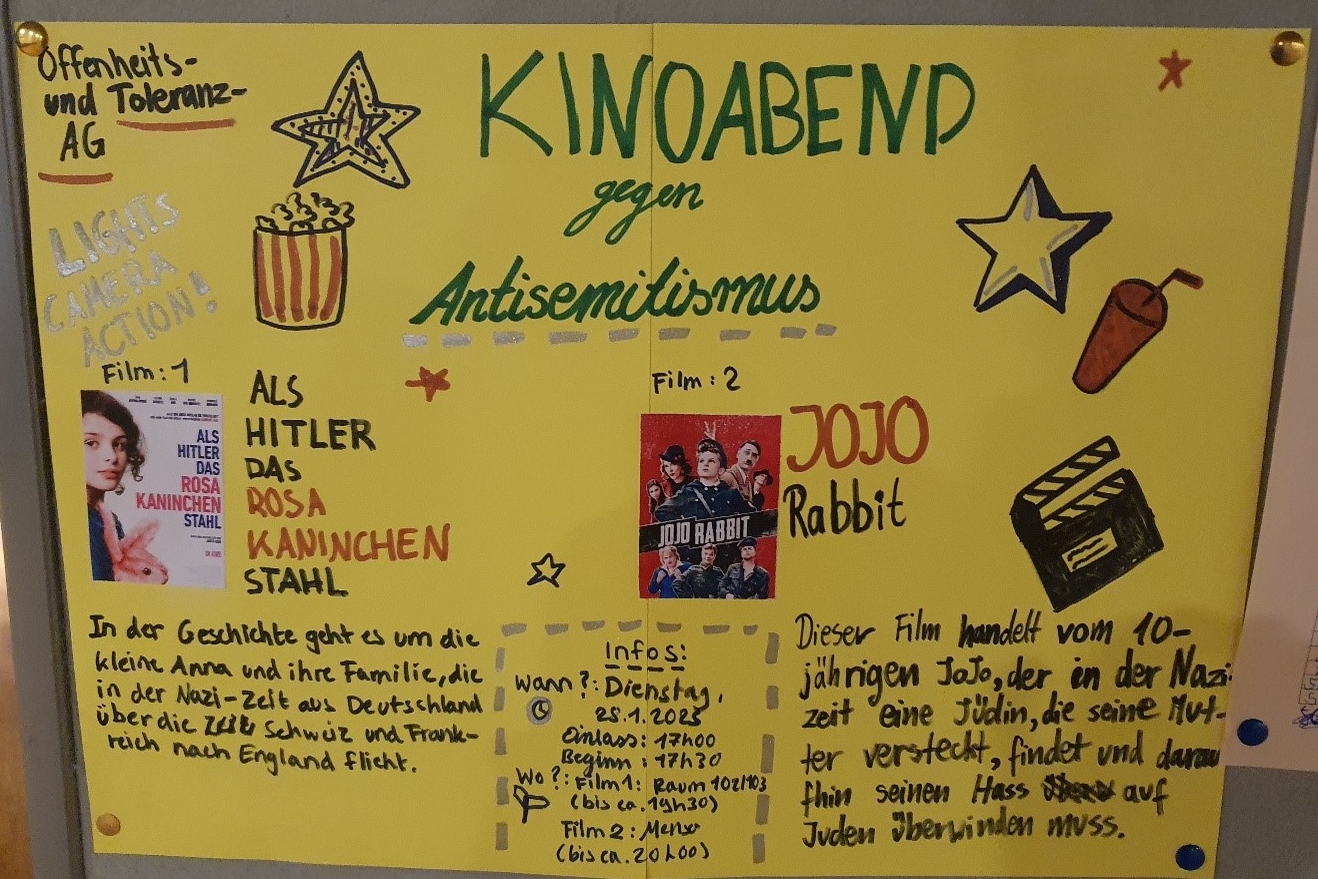 Offenheits-
und Toleranz-
AG
KINOABEND
gegen
Antisemitismus
LIGHTS
CAMERA
ACTION!
Film: 1
ALS
HITLER
DAS
ROSA
KANINCHEN
STAHL
ALS
HITLER
DAS
ROSA
KANINCHEN
STAHL
In der Geschichte geht es um die
kleine Anna und ihre Familie, die
in der Nazi-Zeit aus Deutschland
über die Schweiz und Frank-
reich nach England flieht.
Film: 2
JOJO RABBIT
JOJO
Rabbit
Infos:
Wann?: Dienstag,
25.1.2023
Einlass: 17h00
Beginn: 17h30
Wo?: Film 1: Raum 102/103
(bis ca. 19h30)
Film 2: Mensa
(bis ca. 20h00)
Dieser Film handelt vom 10-
jährigen JoJo, der in der Nazi-
zeit eine Jüdin, die seine Mut-
ter versteckt, findet und darau
fhin seinen Hass auf
Juden überwinden muss.